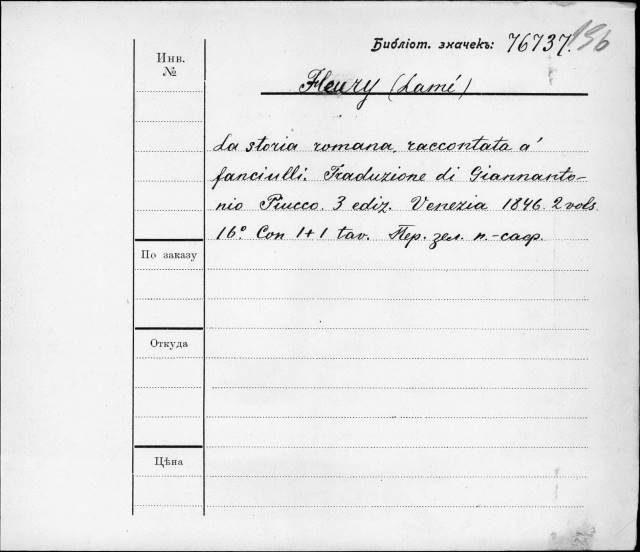 Библіот. значекъ: 76737. 196
Инв.
№
Fleury (Lamé)
La storia romana, raccontata a'
fanciulli. Traduzione di Giannanto-
nio Piucco. 3 ediz. Venezia 1846. 2 vols.
16° Con 1+1 tav. Пер. зел. п.-саф.
По заказу
Откуда
Цѣна